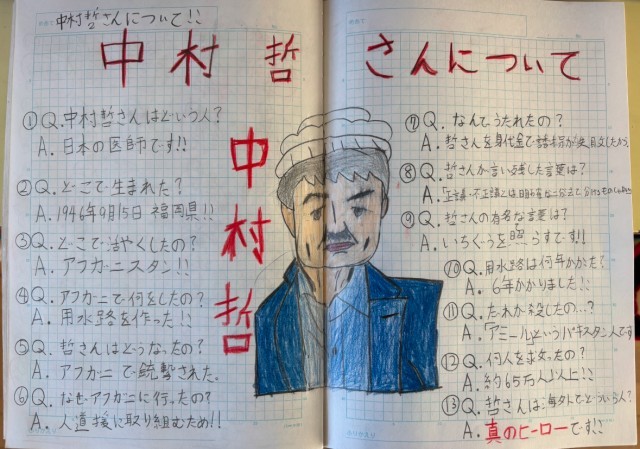 中村哲さんについて!!
中村哲さんについて
中村哲
①Q.中村哲さんはどういう人?
A.日本の医師です!!
②Q.どこで生まれた?
A.1946年9月15日 福岡県!!
③Q.どこで活やくしたの?
A.アフガニスタン!!
④Q.アフガニで何をしたの?
A.用水路を作った!!
⑤Q.哲さんはどうなったの?
A.アフガニで銃撃された。
⑥Q.なぜアフガニに行ったの?
A.人道援に取り組むため!!
⑦Q.なんでうたれたの?
A.哲さんを身代金で
⑧Q.哲さんが言い残した言葉は?
A.「正義・不正義とは明らかな二分法で分けられるものではない
⑨Q.哲さんの有名な言葉は?
A.いちぐうを照らすです!!
⑩Q.用水路は何年かかった?
A.6年かかりました!!
⑪Q.だれが殺したの…?
A.「アミール」というパキスタン人です
⑫Q.何人を救ったの?
A.約65万人以上!!
⑬Q.哲さんは海外でどういう人?
A.真のヒーローです!!